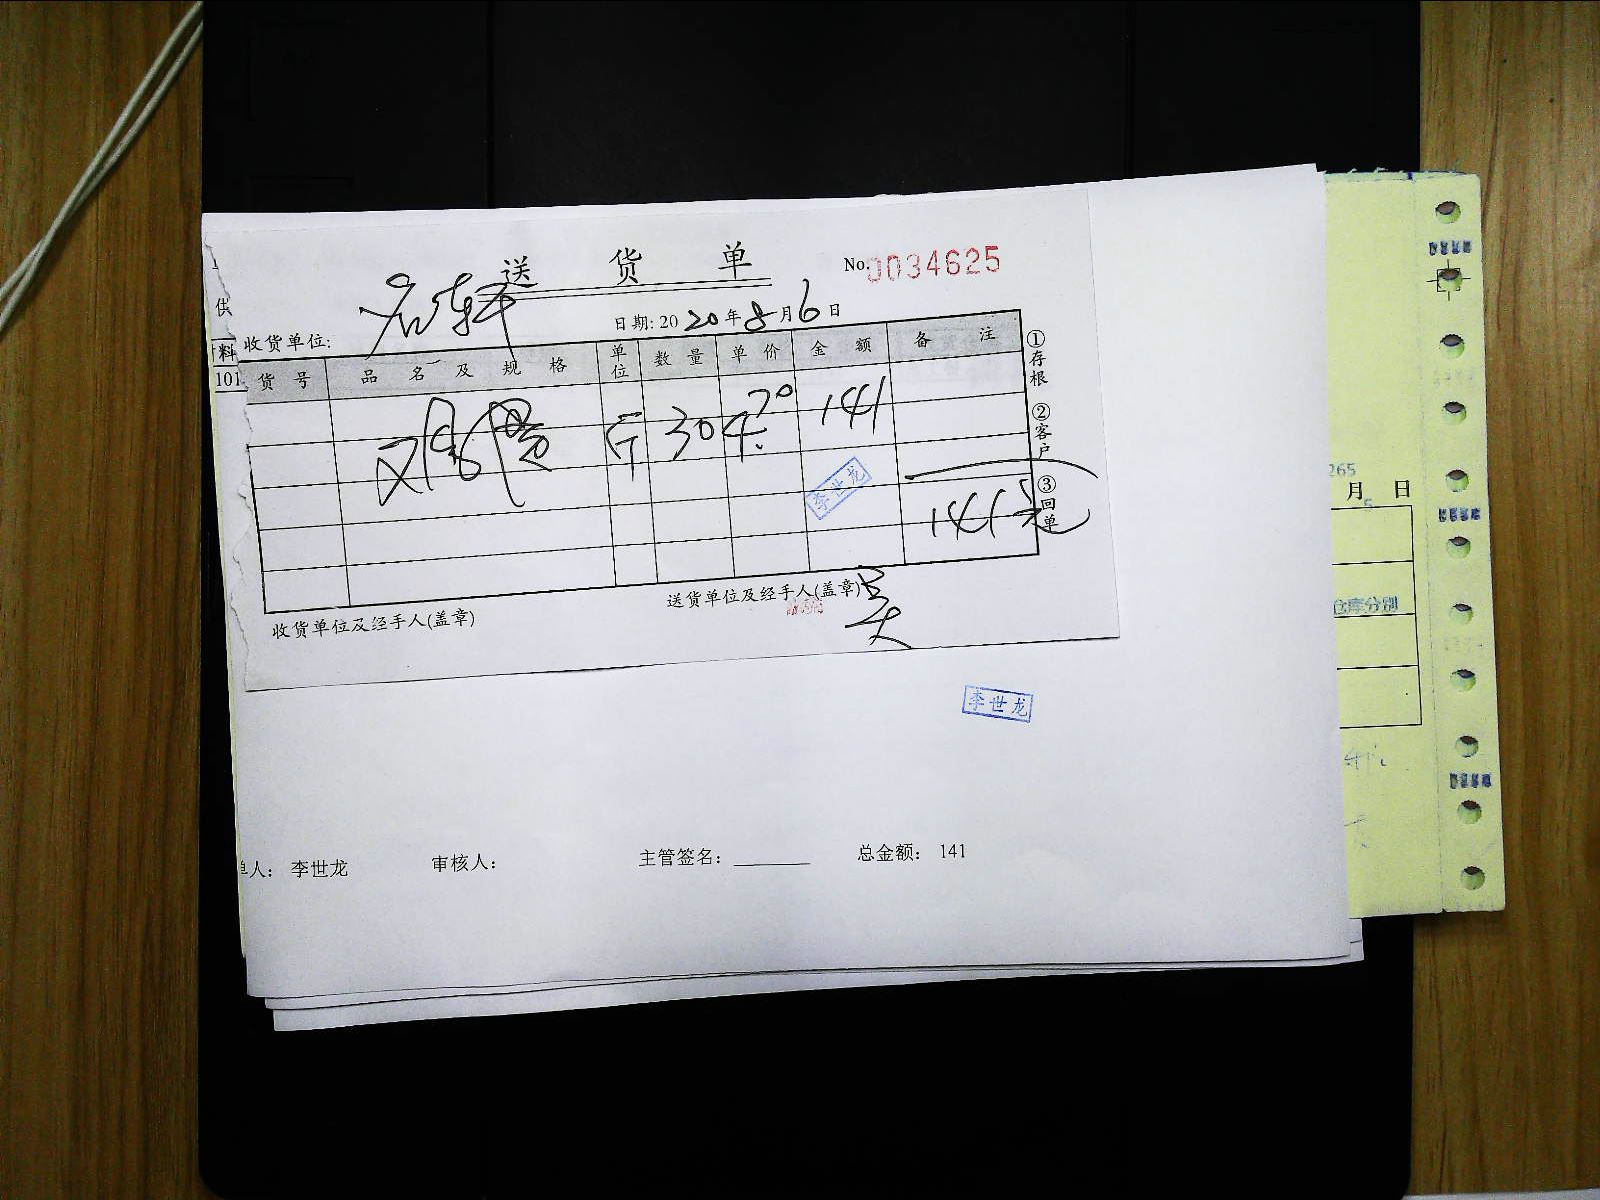 送 货 单
No. 0034625
收货单位: 名轩
日期: 2020年8月6日
供
料
101
货 号 品 名 及 规 格 单位 数 量 单 价 金 额 备 注
斤 30 4.70 141
李世龙
141元
①存根 ②客户 ③回单
收货单位及经手人(盖章)
送货单位及经手人(盖章)
李世龙
单人: 李世龙 审核人: 主管签名: 总金额: 141
265
月 日
仓库分别